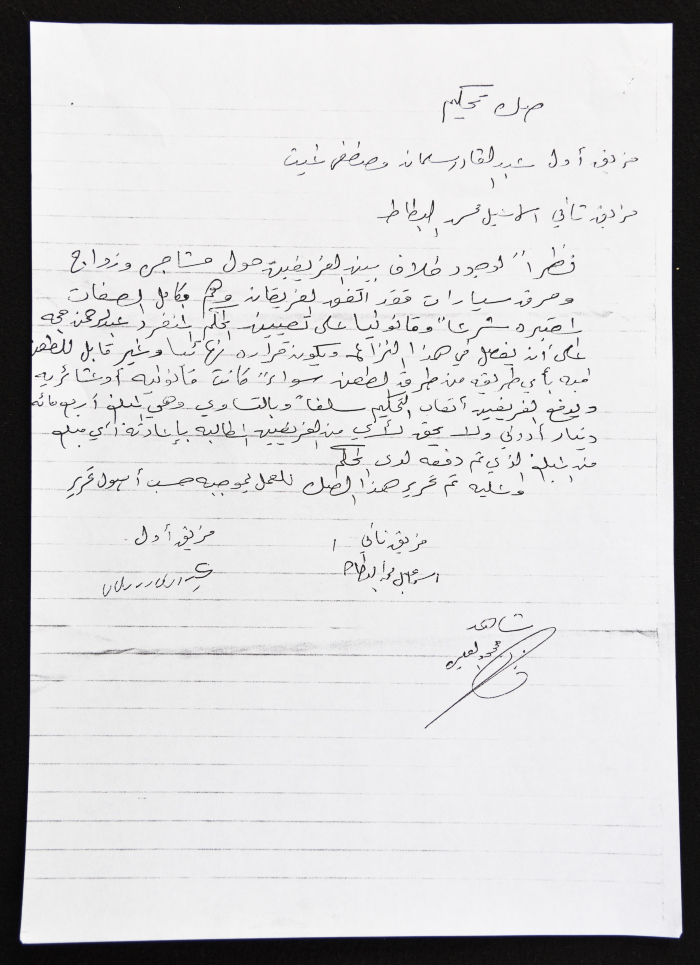 صك تحكيم
فريق أول عبد القادر سلمان ومصطفى غيث
فريق ثاني اسماعيل محمد البطاط
نظراً لوجود خلاف بين الفريقين حول مشاجره وزواج
وحرق سيارات فقد اتفق الفريقان وهم بكامل الصفات
المعتبره شرعاً وقانونياً على تعيين المحكم المنفرد عبد الرحمن حجه
على أن يفصل في هذا النزاع ويكون قراره نهائياً وغير قابل للطعن
فيه بأي طريقه من طرق الطعن سواءً كانت قانونيه أو عشائريه
ويدفع الفريقين أتعاب التحكيم سلفاً وبالتساوي وهي مبلغ أربع مائه
دينار أردني ولا يحق لأي من الفريقين المطالبه بإعادة أي مبلغ
من المبلغ الذي تم دفعه لدى المحكم
وعليه تم تحرير هذا الصك للعمل بموجبه حسب أصول تحرير
فريق أول
فريق ثاني
اسماعيل محمد البطاط
شاهد
محمود